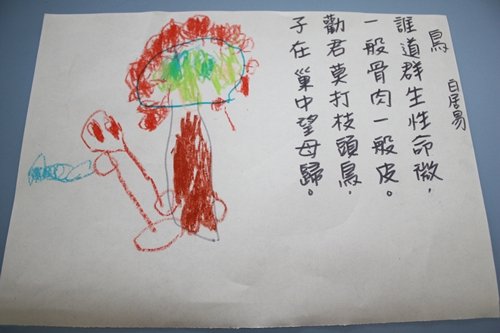 鳥
白居易
誰道群生性命微，
一般骨肉一般皮。
勸君莫打枝頭鳥，
子在巢中望母歸。